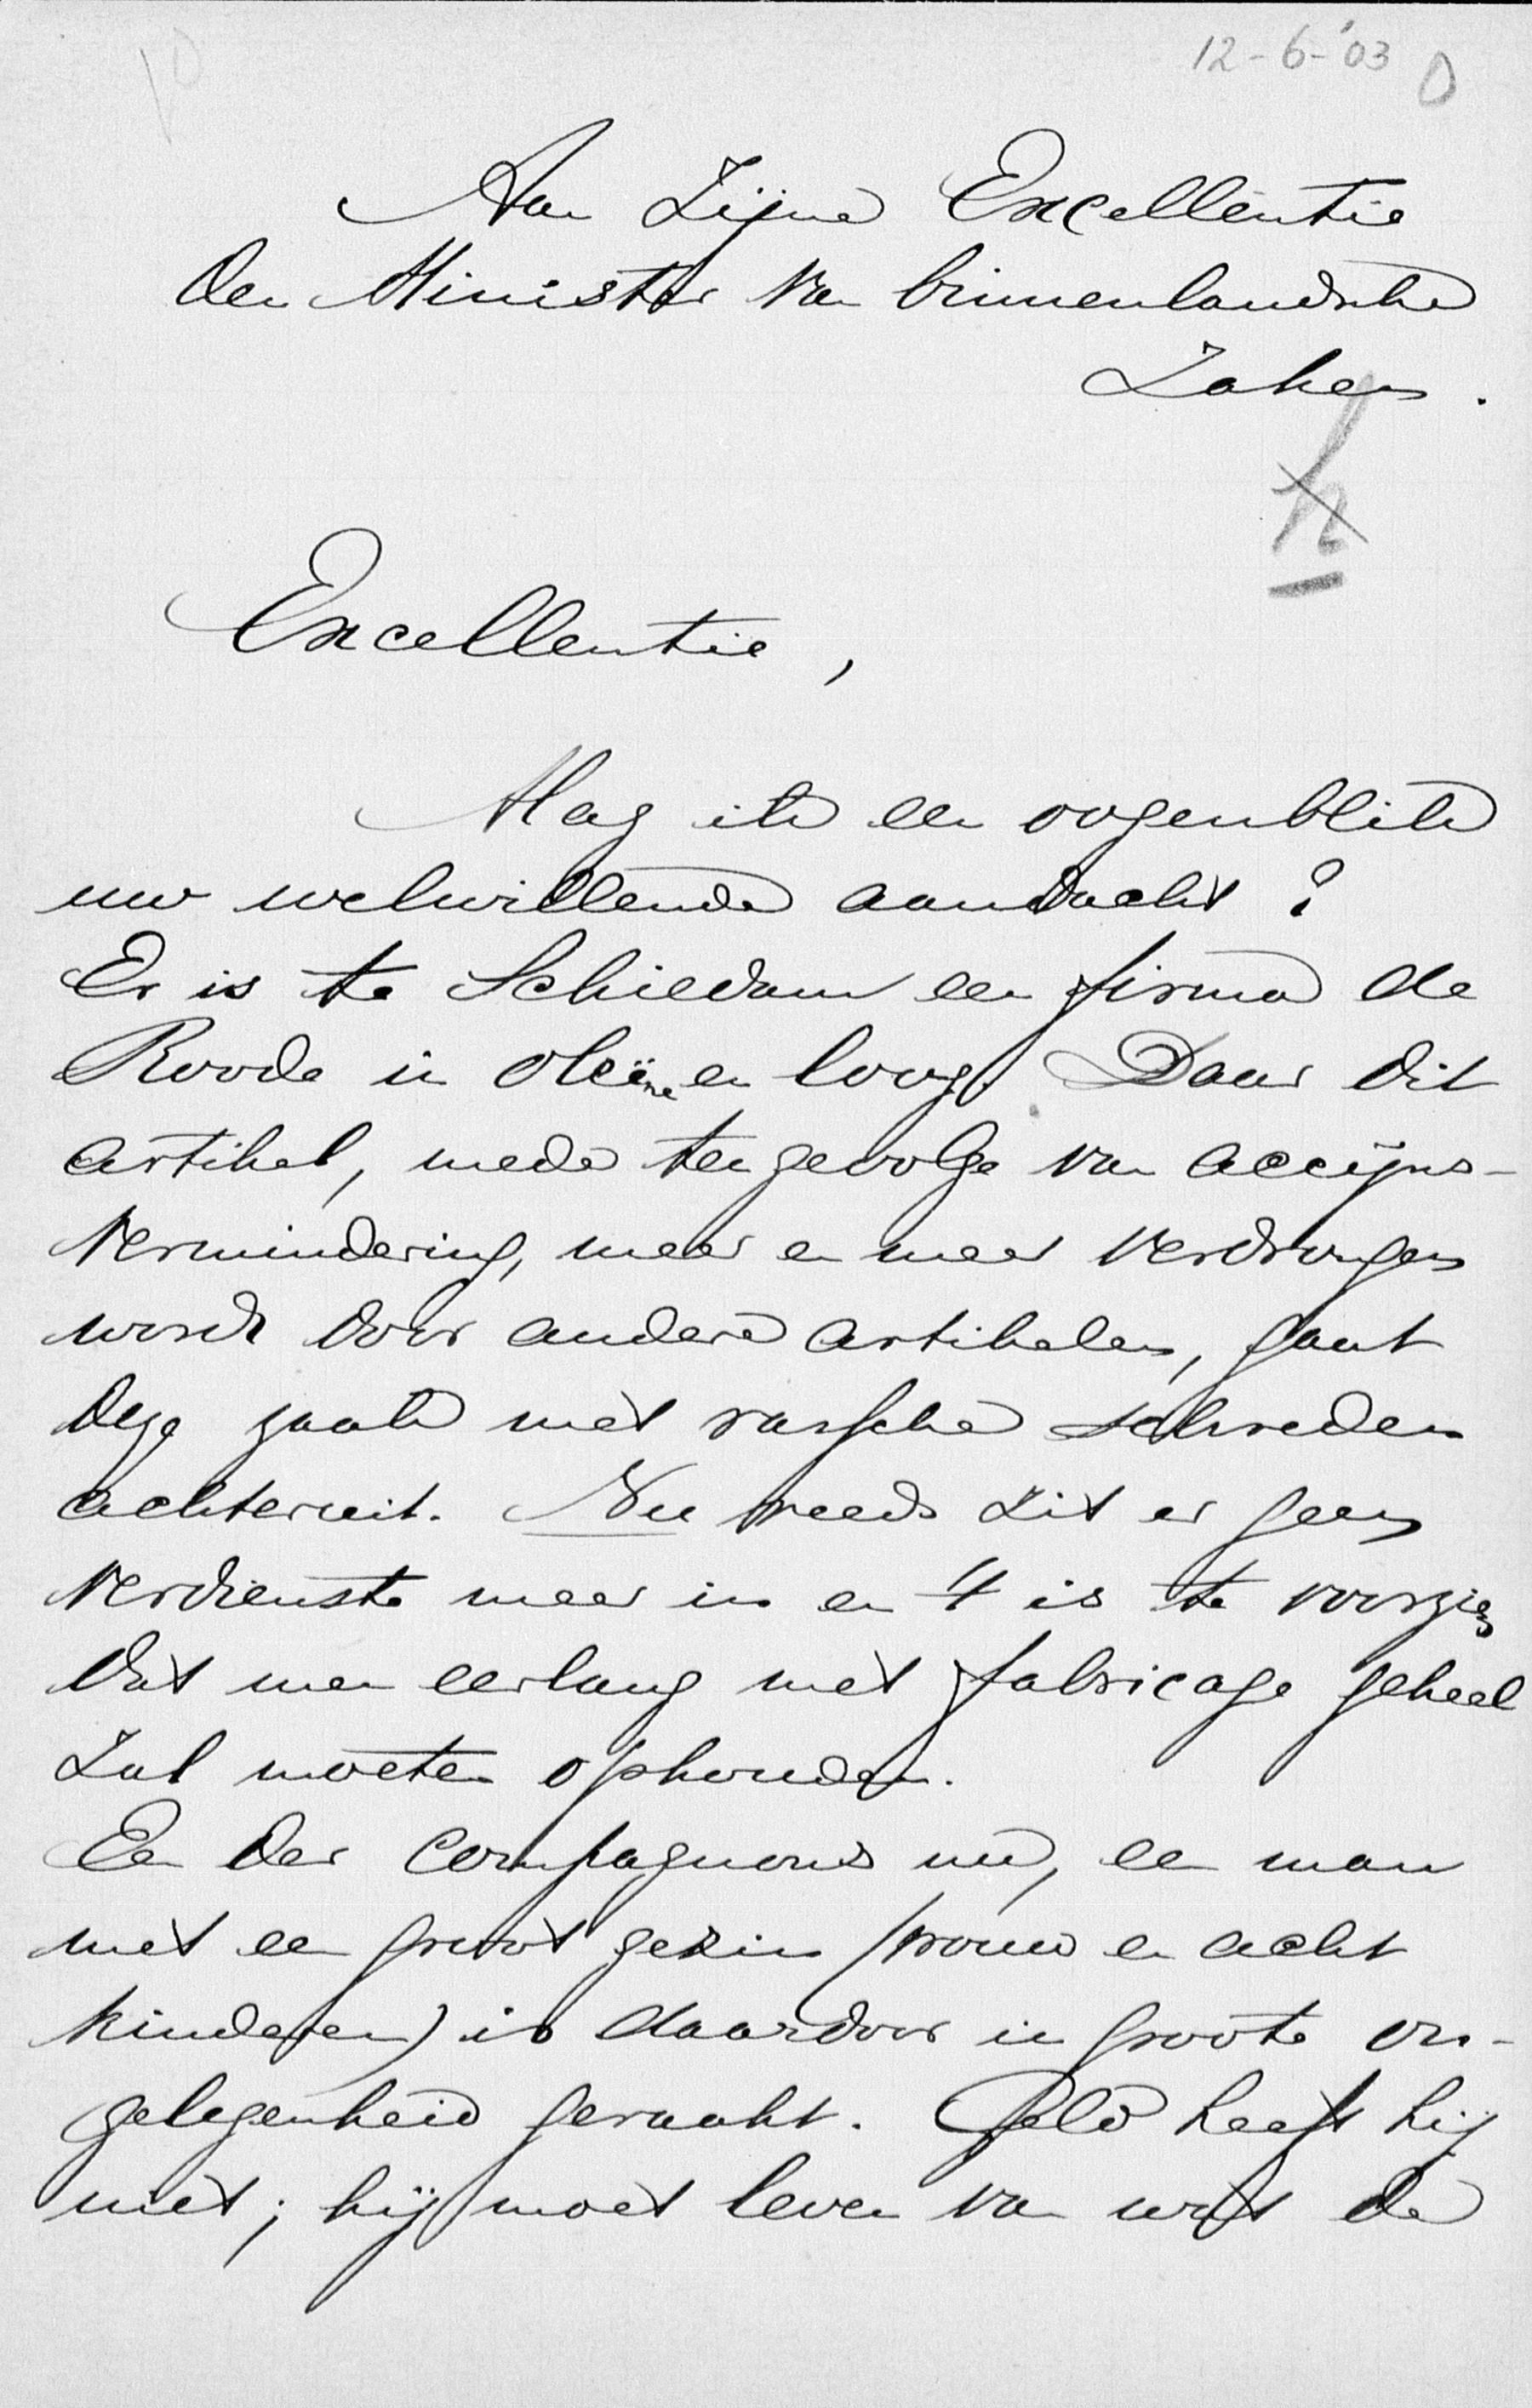 12-6-'03
Aan Zijne Excellentie
den Minister van binnenlandsche
Zaken.
Excellentie,
Mag ik een oogenblik
uw welwillende aandacht?
Er is te Schiedam een firma de
Roode in oleïne en loog. Daar dit
artikel, mede tengevolge van accijns-
vermindering, meer en meer verdrongen
wordt door andere artikelen, gaat
deze zaak met rassche schreden
achteruit. Nu reeds zit er geen
verdienste meer in en 't is te voorzien
dat men eerlang met fabricage geheel
zal moeten ophouden.
Een der compagnons nu, een man
met een groot gezin (vrouw en acht
kinderen) is daardoor in groote on-
gelegenheid geraakt. Geld heeft hij
niet; hij moet leven van wat de